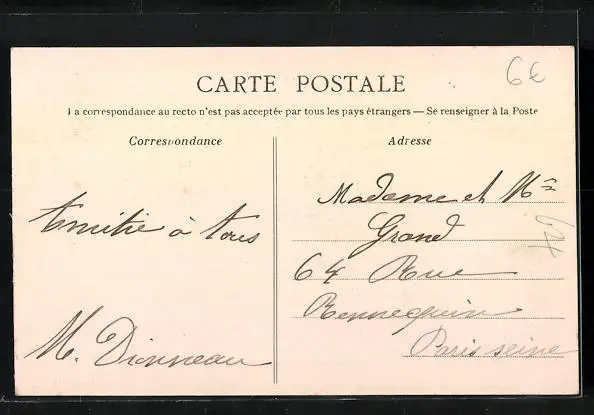 6€
CARTE POSTALE
La correspondance au recto n'est pas acceptée par tous les pays étrangers — Se renseigner à la Poste
Correspondance
Adresse
Amitié à tous
M. Dionneau
Madame et Mr
Grand
64 Rue
Rennequin
Paris seine